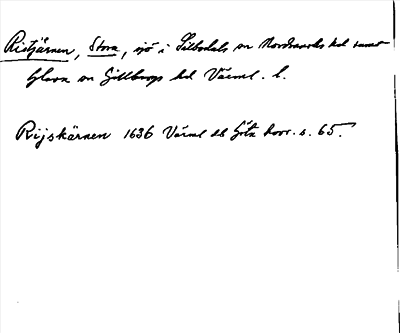 Ristjärnen, Stora, sjö i Silbodals sn Nordmarks hd samt
Glava sn Gillbergs hd Värml. l.
Rijskärnen 1636 Värml db Göta hovr. s. 65.